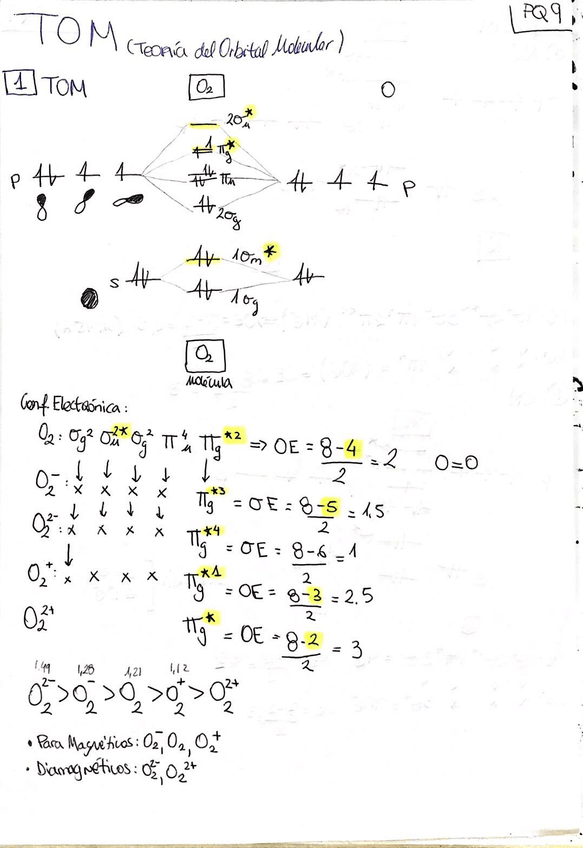 PQ9
TOM (Teoría del Orbital Molecular)
1 TOM O₂ O
2σu*
πg*
p πu p
2σg
1σu*
s
1σg
O₂
Molécula
Conf. Electrónica:
O₂: σg² σu²* σg² πu⁴ πg*² => OE = 8-4/2 = 2 O=O
↓ ↓ ↓ ↓ ↓
O₂⁻: x x x x πg*³ = OE = 8-5/2 = 1.5
↓ ↓ ↓ ↓
O₂²⁻: x x x x πg*⁴ = OE = 8-6/2 = 1
↓
O₂⁺: x x x x πg*1 = OE = 8-3/2 = 2.5
O₂²⁺ πg* = OE = 8-2/2 = 3
1,49 1,28 1,21 1,12 —
O₂²⁻ > O₂⁻ > O₂ > O₂⁺ > O₂²⁺
• Para Magnéticos: O₂⁻, O₂, O₂⁺
• Diamagnéticos: O₂²⁻, O₂²⁺